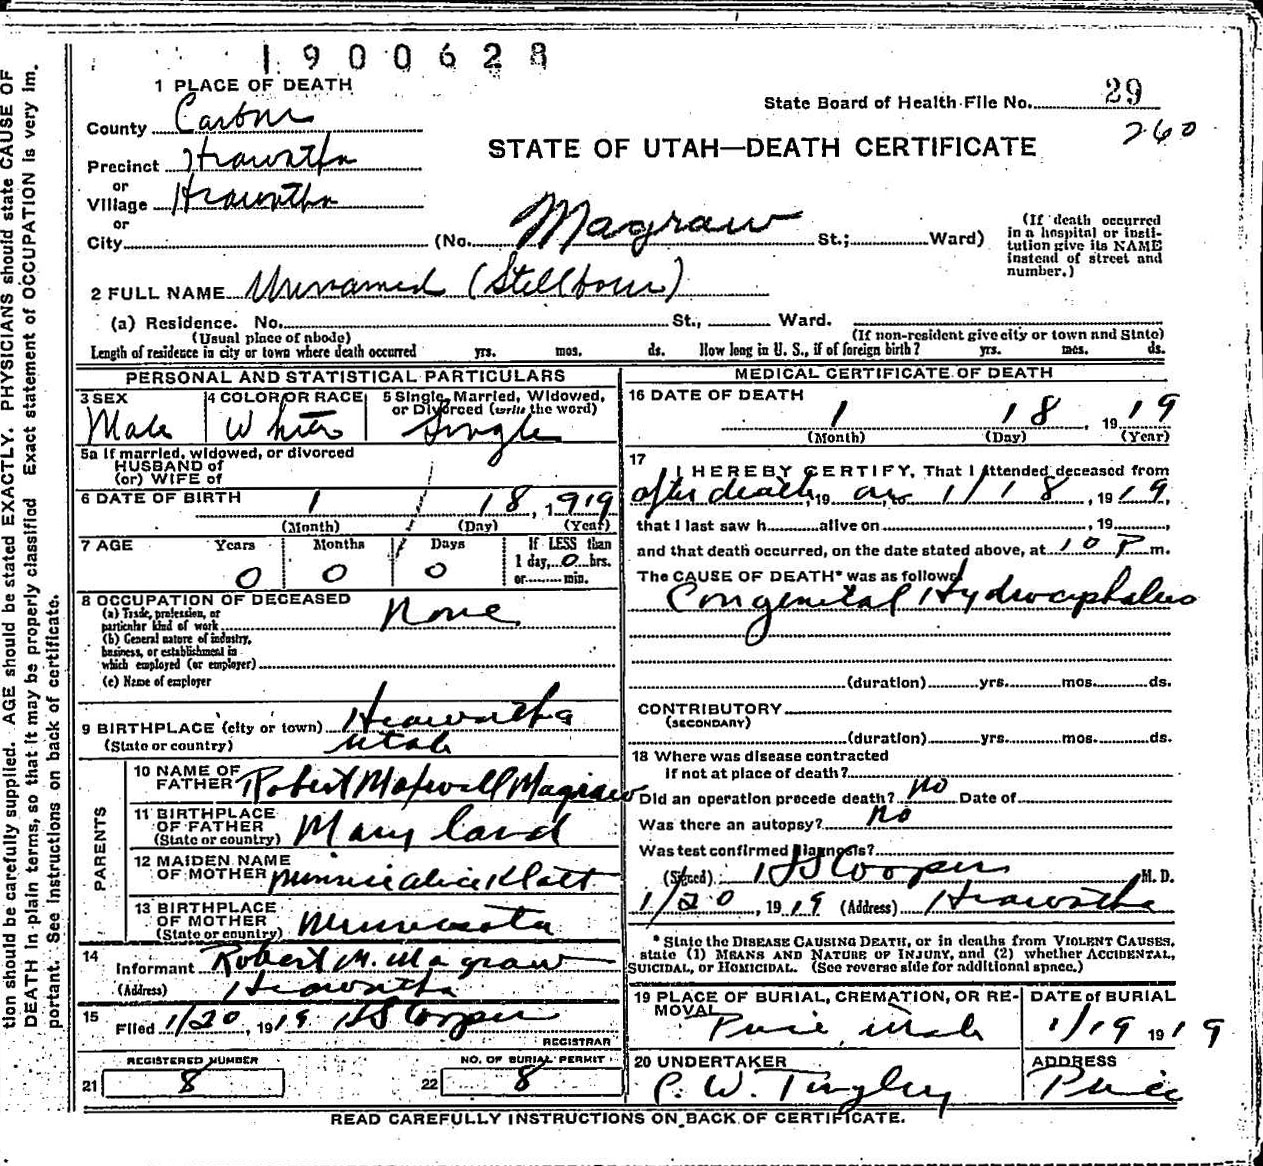 1900628
1 PLACE OF DEATH
State Board of Health File No. 29
260
County Carbon
STATE OF UTAH—DEATH CERTIFICATE
Precinct Hiawatha
or
Village Hiawatha
or
City (No. Magraw St.; Ward)
(If death occurred in a hospital or institution give its NAME instead of street and number.)
2 FULL NAME Unnamed (Stillborn)
(a) Residence. No. St., Ward.
(Usual place of abode) (If non-resident give city or town and State)
Length of residence in city or town where death occurred yrs. mos. ds. How long in U. S., if of foreign birth? yrs. mos. ds.
PERSONAL AND STATISTICAL PARTICULARS
3 SEX Male
4 COLOR OR RACE White
5 Single, Married, Widowed, or Divorced (write the word) Single
5a If married, widowed, or divorced
HUSBAND of
(or) WIFE of
6 DATE OF BIRTH 1 18, 1919
(Month) (Day) (Year)
7 AGE Years Months Days If LESS than
0 0 0 1 day, 0 hrs.
or min.
8 OCCUPATION OF DECEASED
(a) Trade, profession, or particular kind of work None
(b) General nature of industry, business, or establishment in which employed (or employer)
(c) Name of employer
9 BIRTHPLACE (city or town) Hiawatha
(State or country) Utah
PARENTS
10 NAME OF FATHER Robert Maxwell Magraw
11 BIRTHPLACE OF FATHER (State or country) Maryland
12 MAIDEN NAME OF MOTHER Minnie Alice Klatt
13 BIRTHPLACE OF MOTHER (State or country) Minnesota
14 Informant Robert M. Magraw
(Address) Hiawatha
15 Filed 1/20, 1919 HS Cooper
REGISTRAR
REGISTERED NUMBER NO. OF BURIAL PERMIT
21 8 22 8
MEDICAL CERTIFICATE OF DEATH
16 DATE OF DEATH
1 18, 1919
(Month) (Day) (Year)
17 I HEREBY CERTIFY, That I Attended deceased from
after death, 19 on 1/18, 1919,
that I last saw h alive on , 19 ,
and that death occurred, on the date stated above, at 10 P m.
The CAUSE OF DEATH* was as follows:
Congenital Hydrocephalus
(duration) yrs. mos. ds.
CONTRIBUTORY
(SECONDARY)
(duration) yrs. mos. ds.
18 Where was disease contracted
if not at place of death?
Did an operation precede death? no Date of
Was there an autopsy? no
Was test confirmed diagnosis?
(Signed) HS Cooper M. D.
1/20, 1919 (Address) Hiawatha
* State the DISEASE CAUSING DEATH, or in deaths from VIOLENT CAUSES,
state (1) MEANS AND NATURE OF INJURY, and (2) whether ACCIDENTAL,
SUICIDAL, or HOMICIDAL. (See reverse side for additional space.)
19 PLACE OF BURIAL, CREMATION, OR REMOVAL Price Utah
DATE of BURIAL 1/19 1919
20 UNDERTAKER C. W. Tingley
ADDRESS Price
READ CAREFULLY INSTRUCTIONS ON BACK OF CERTIFICATE.
tion should be carefully supplied. AGE should be stated EXACTLY. PHYSICIANS should state CAUSE OF
DEATH in plain terms, so that it may be properly classified Exact statement of OCCUPATION is very im.
portant. See instructions on back of certificate.